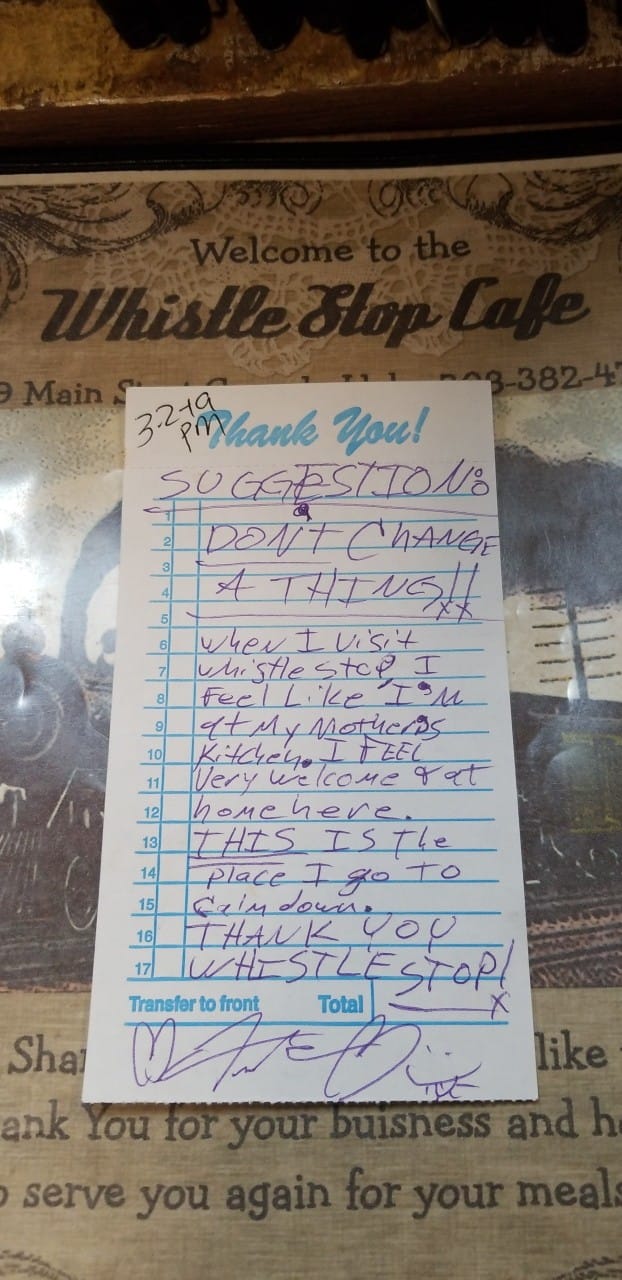 Welcome to the
Whistle Stop Cafe
9 Main
8-382-4
3-2-19
PM
Thank You!
SUGGESTION:
1
2 DON'T CHANGE
3
4 A THING!!
5
6 when I visit
7 whistle stop, I
8 Feel Like I'm
9 at My Mother's
10 Kitchen. I FEEL
11 Very welcome & at
12 home here.
13 THIS IS The
14 place I go TO
15 Calm down.
16 THANK YOU
17 WHISTLE STOP!
Transfer to front Total
like
ank You for your buisness and
serve you again for your meals